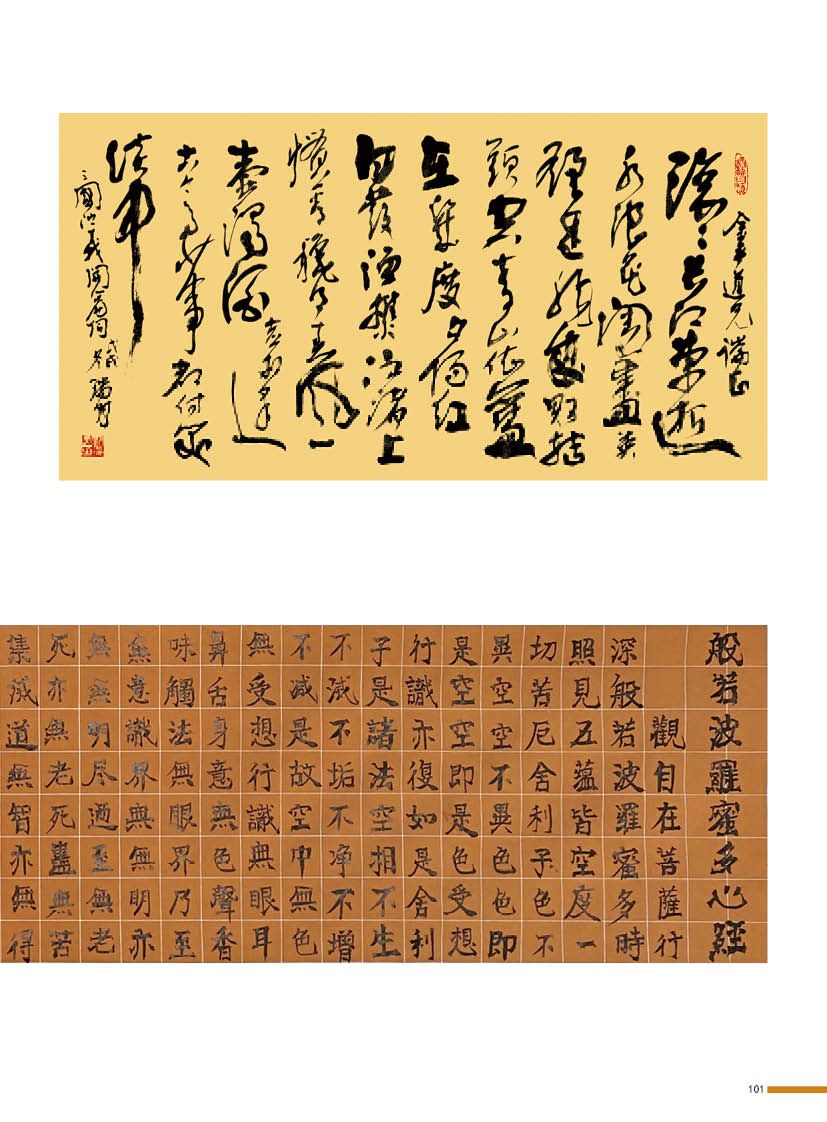 道兄
滚々长江東逝
水浪花淘盡英
雄是非成敗转
頭空青山依舊
在幾度夕陽红
白發漁樵江渚上
惯看秋月春風一
壺濁酒喜相逢
古今多少事都付笑
談中
三國演义開篇词
般若波羅蜜多心經
觀自在菩薩行
深般若波羅蜜多時
照見五蘊皆空度一
切苦厄舍利子色不
異空空不異色色即
是空空即是色受想
行識亦復如是舍利
子是諸法空相不生
不滅不垢不净不增
不減是故空中無色
無受想行識無眼耳
鼻舌身意無色聲香
味觸法無眼界乃至
無意識界無無明亦
無無明尽迺至無老
死亦無老死盡無苦
集滅道無智亦無得
101